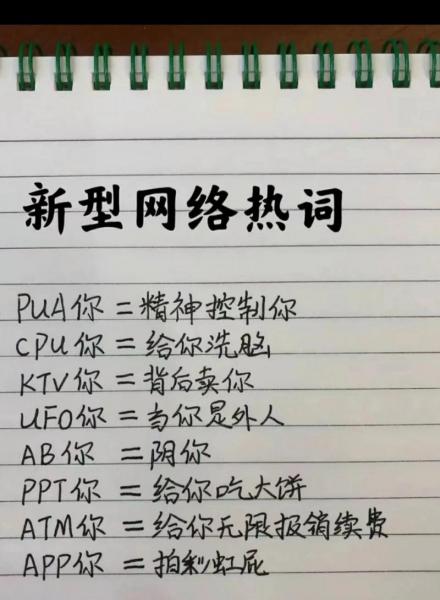 新型网络热词
PUA你=精神控制你
CPU你=给你洗脑
KTV你=背后卖你
UFO你=当你是外人
AB你=阴你
PPT你=给你吃大饼
ATM你=给你无限报销续费
APP你=拍彩虹屁